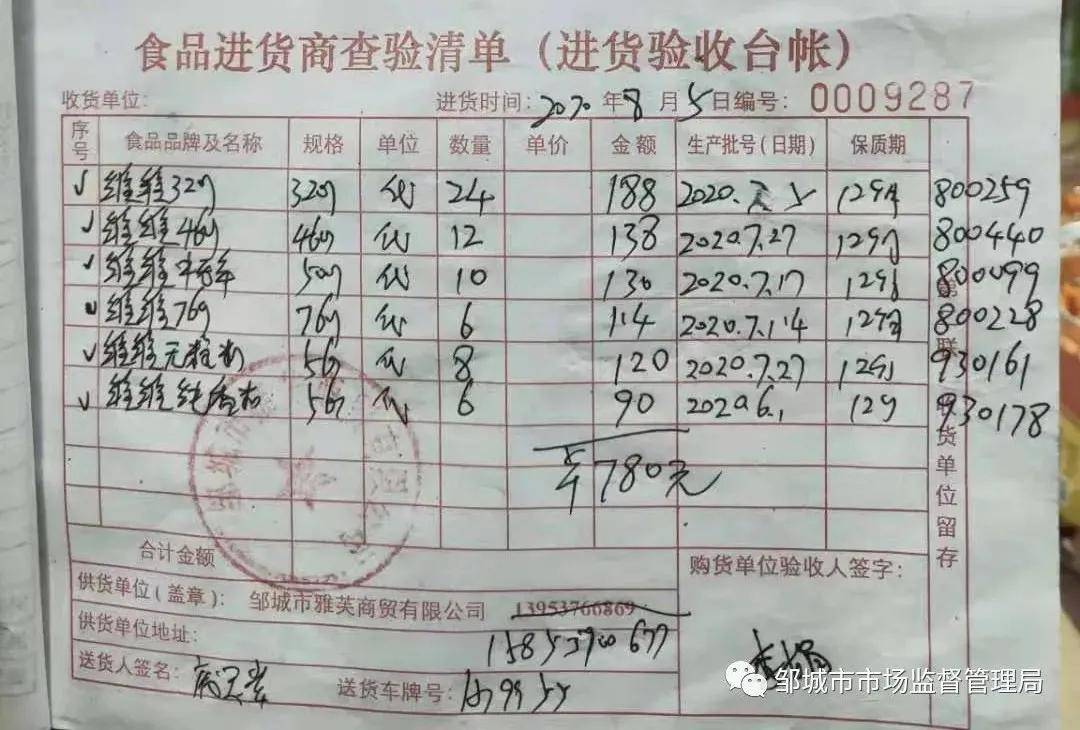 食品进货商查验清单（进货验收台帐）
收货单位： 进货时间：2020年8月5日 编号：0009287
序号 食品品牌及名称 规格 单位 数量 单价 金额 生产批号(日期) 保质期
√ 维维320g 320g 袋 24 188 2020. 12个月 800259
√ 维维460g 460g 袋 12 138 2020.7.27 12个月 800440
√ 维维 500g 袋 10 130 2020.7.17 12个月 800099
√ 维维760g 760g 袋 6 114 2020.7.14 12个月 800228
√ 维维无糖 560g 袋 8 120 2020.7.27 12个月 930161
√ 维维纯 560g 袋 6 90 2020.6.1 12个月 930178
780元
联
货单位留存
合计金额
购货单位验收人签字：
供货单位(盖章)：邹城市雅芙商贸有限公司 13953766869
供货单位地址： 15853700677
送货人签名： 送货车牌号：
邹城市市场监督管理局